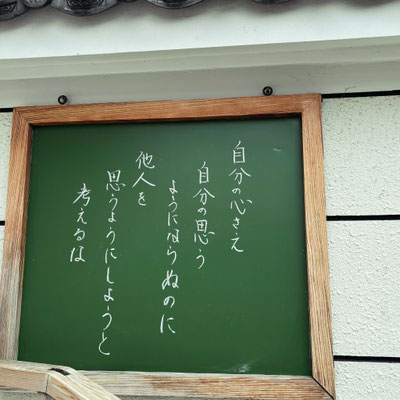 自分の心さえ
自分の思う
ようにはらぬのに
他人を
思うようにしようと
考えるは